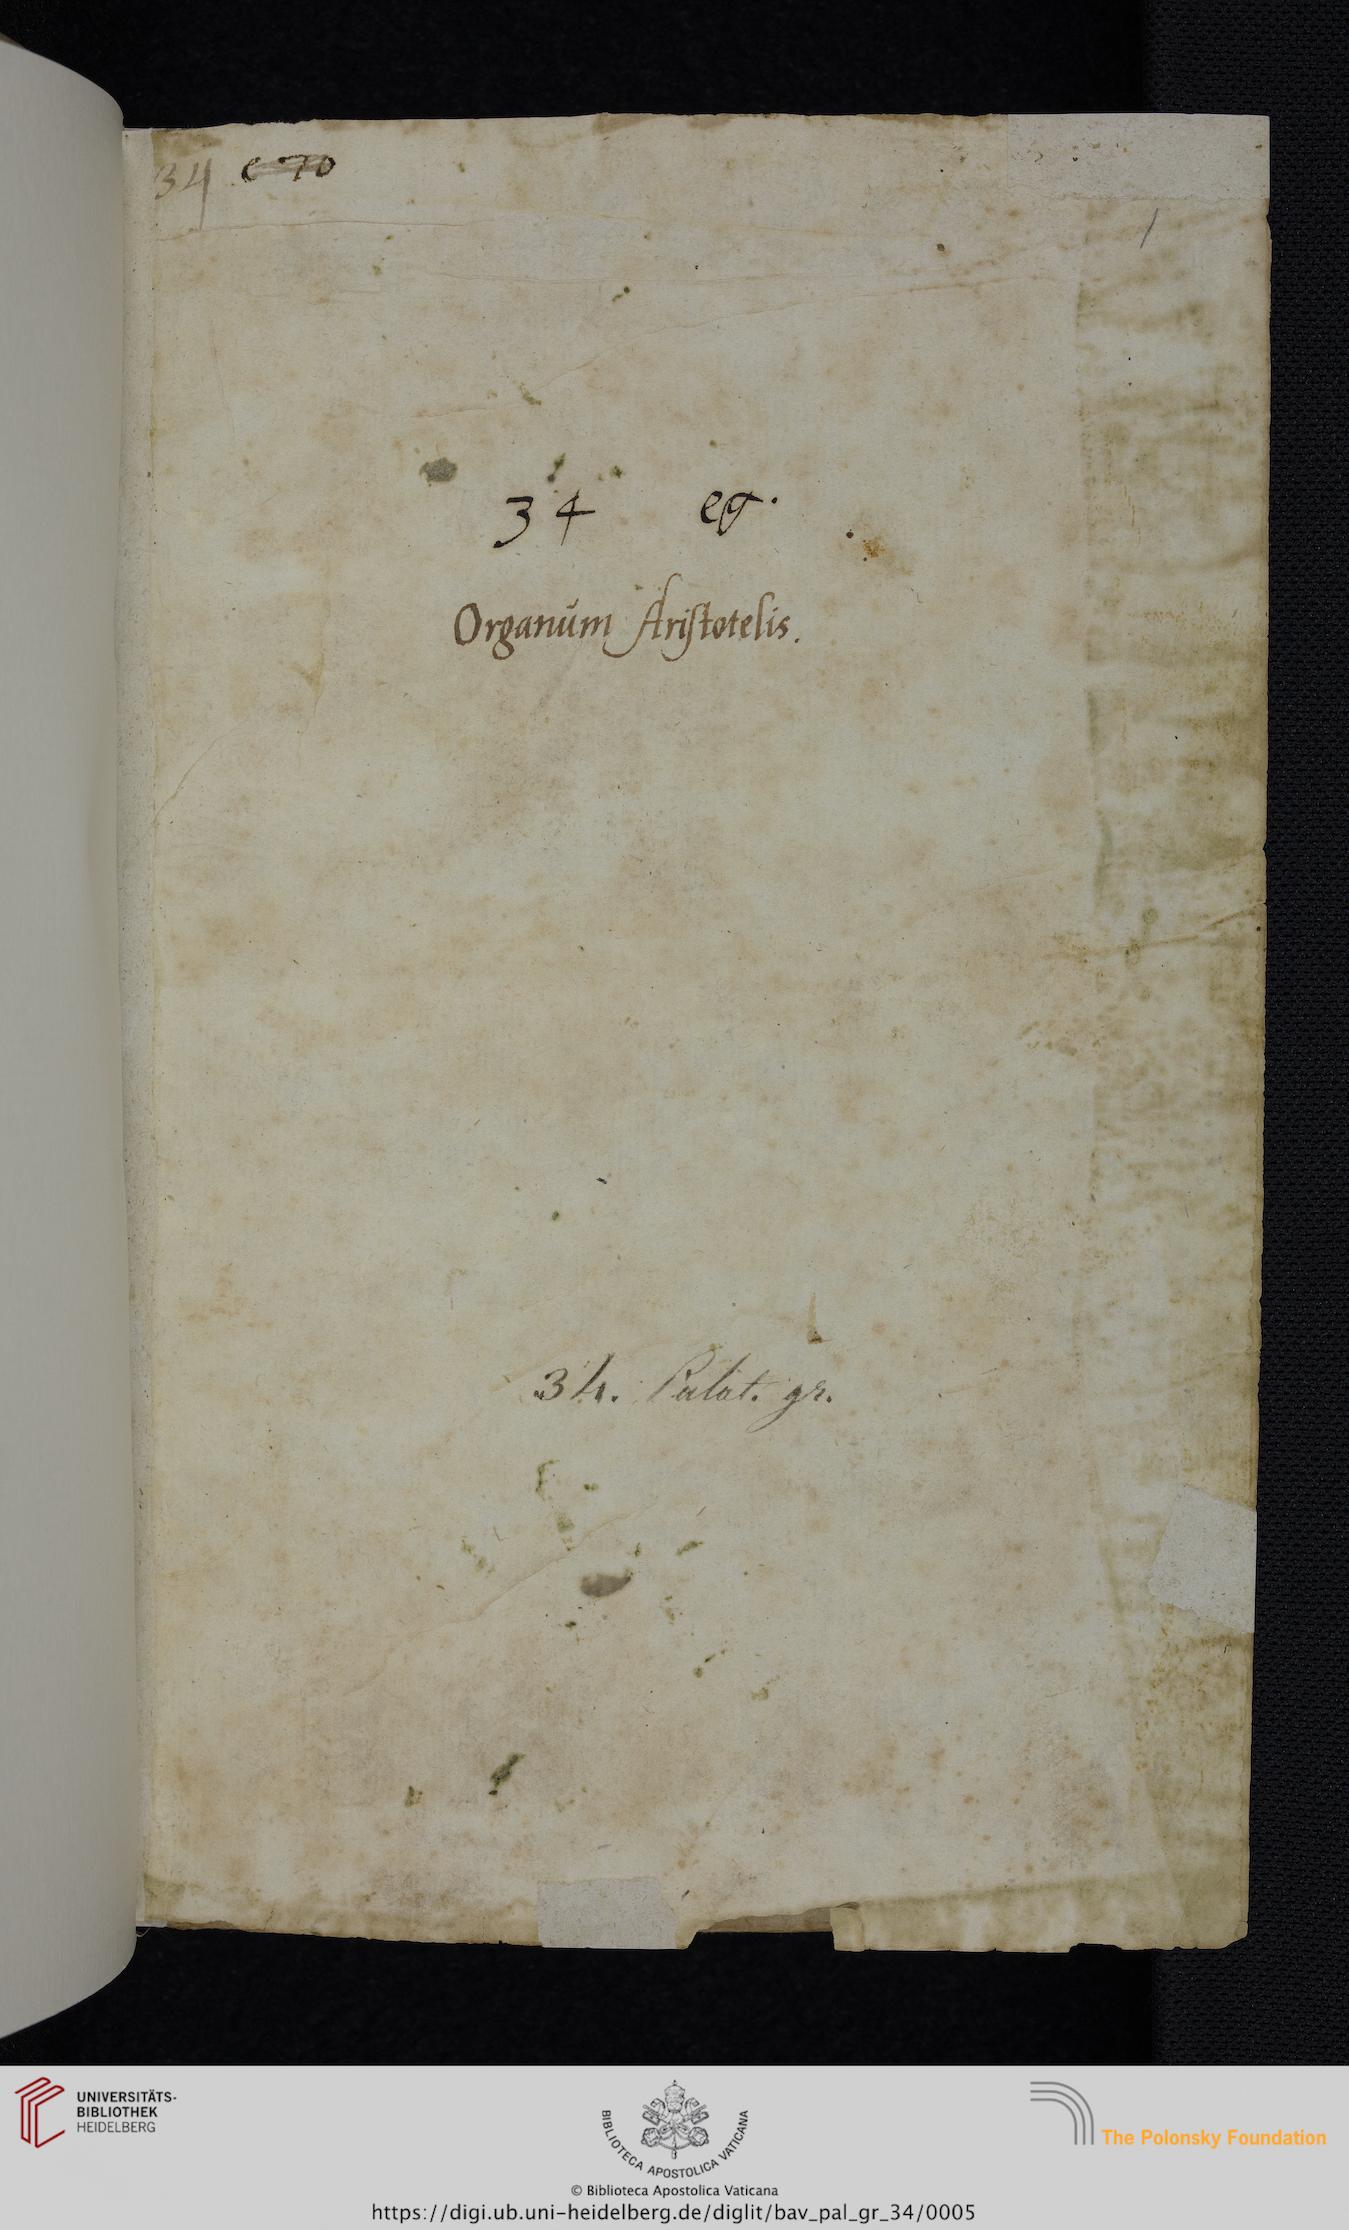 34 C 70
1
34 eg.
Organum Aristotelis.
34. Palat. gr.
UNIVERSITÄTS-
BIBLIOTHEK
HEIDELBERG
BIBLIOTECA APOSTOLICA VATICANA
The Polonsky Foundation
© Biblioteca Apostolica Vaticana
https://digi.ub.uni-heidelberg.de/diglit/bav_pal_gr_34/0005